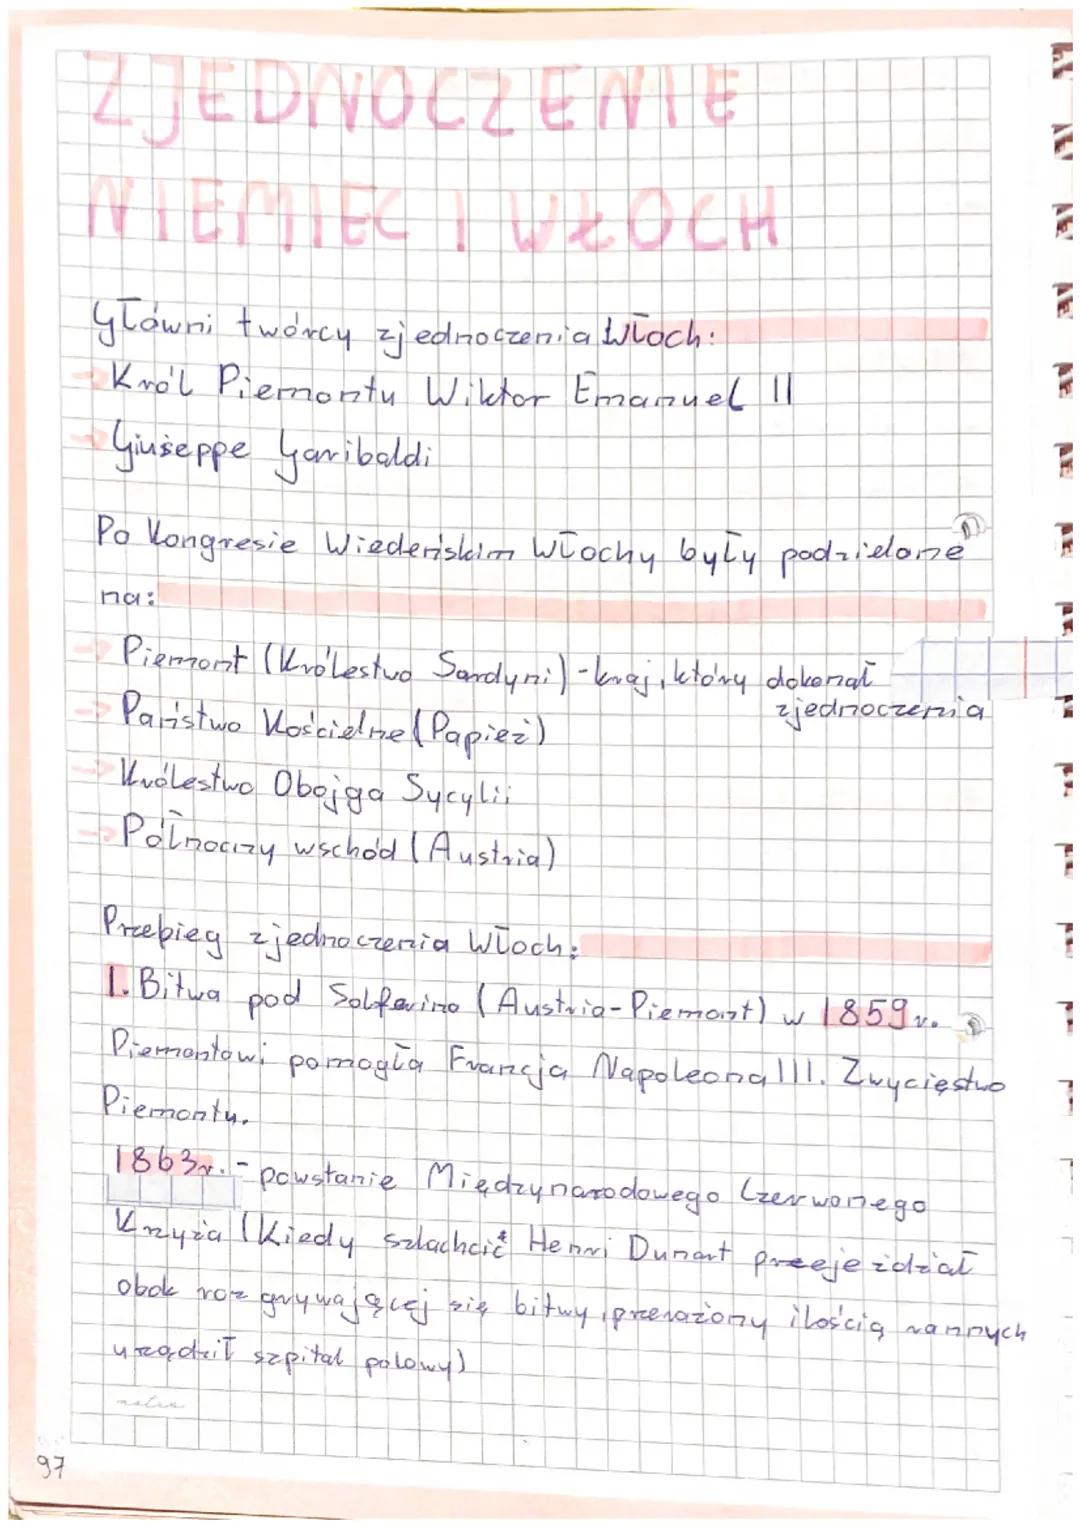 ZJEDNOCZENIE
NIEMIEC I WŁOCH
Główni twórcy zjednoczenia Włoch:
→ Król Piemontu Wiktor Emanuel II
→ Giuseppe Garibaldi
Po Kongresie Wiedeńskim Włochy były podzielone
na:
→ Piemont (Królestwo Sardyni) - kraj, który dokonał
zjednoczenia
→ Państwo Kościelne (Papież)
→ Królestwo Obojga Sycylii
→ Północny wschód (Austria)
Przebieg zjednoczenia Włoch:
1. Bitwa pod Solferino (Austria-Piemont) w 1859r.
Piemontowi pomogła Francja Napoleona III. Zwycięstwo
Piemontu.
1863r. - powstanie Międzynarodowego Czerwonego
Krzyża (Kiedy szlachcić Henri Dunant przejeżdżał
obok rozgrywającej się bitwy, przerażony ilością rannych
urządził szpital polowy)
97